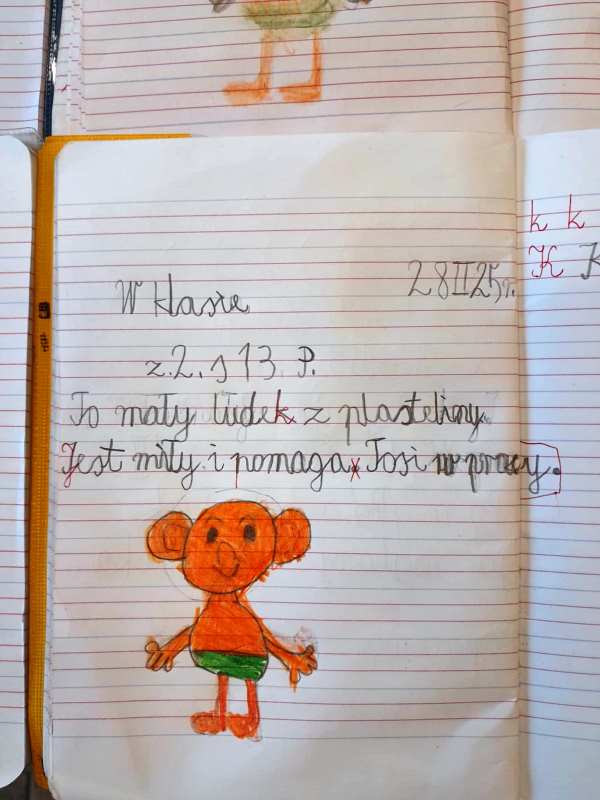 k k
K K
28 II 25 r.
W klasie
z. 2. s 13 P.
To mały ludek z plasteliny.
Jest miły i pomaga Tosi w pracy.